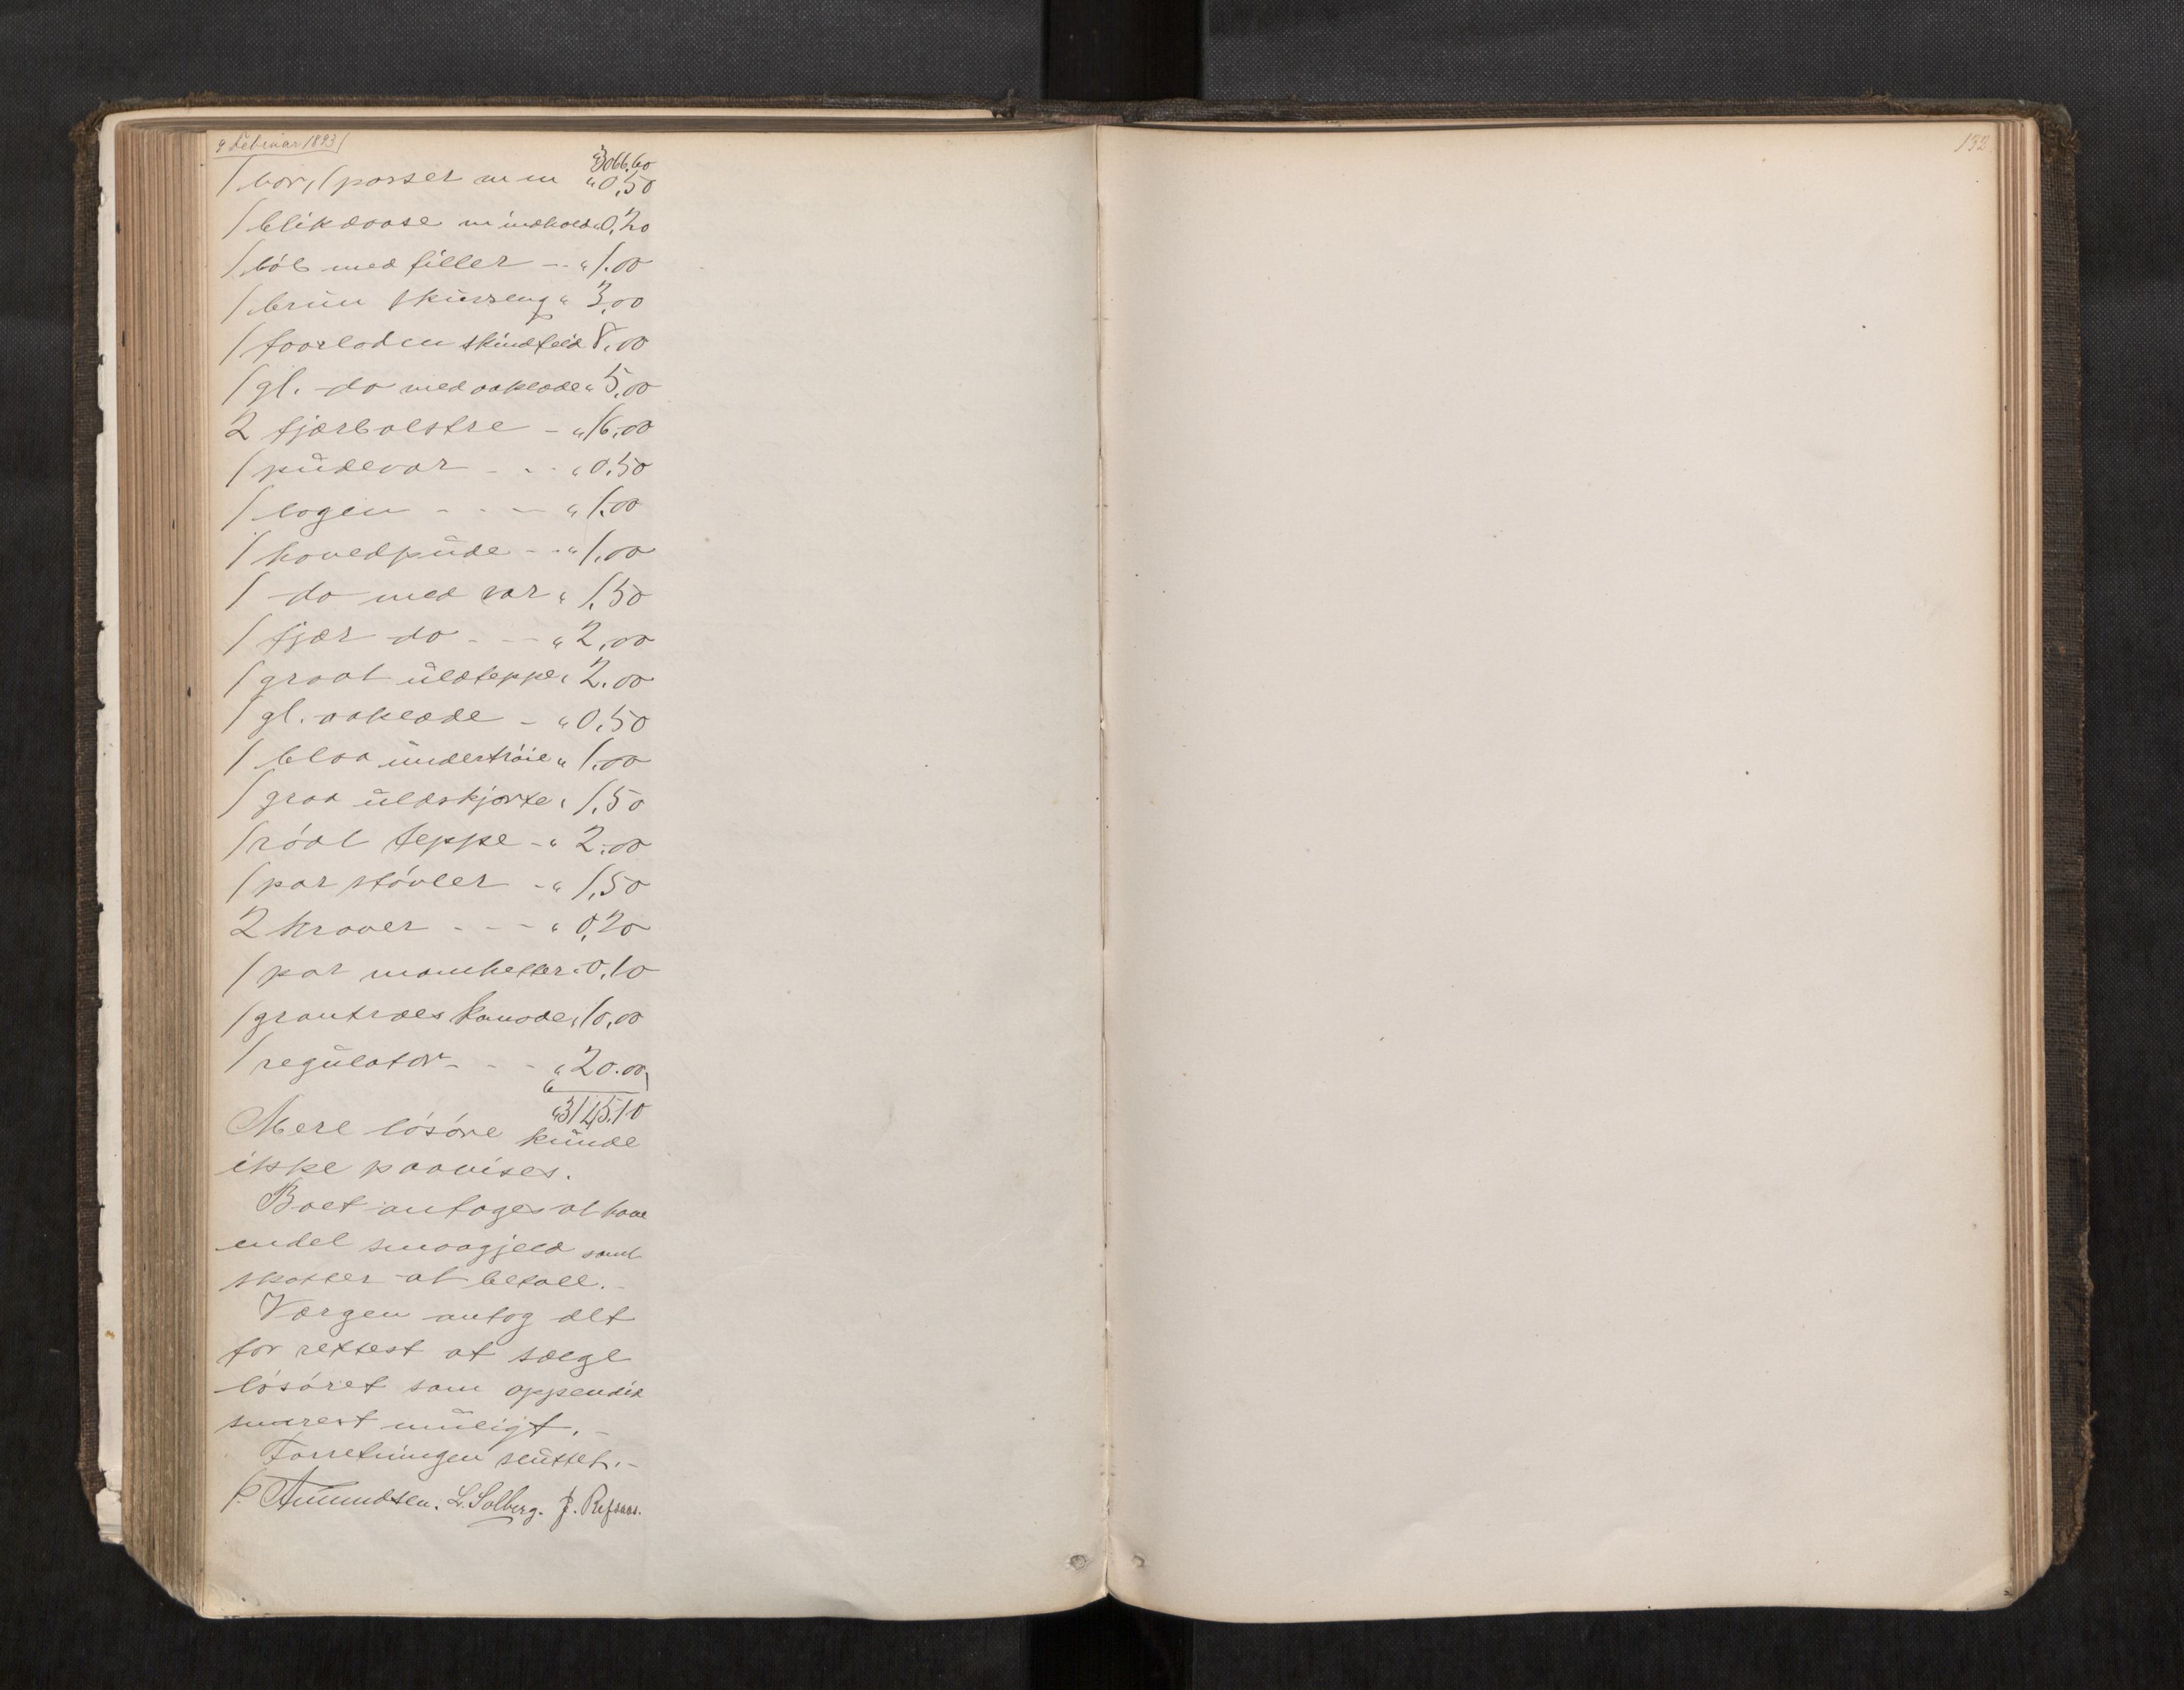 9 Februar 1893
132
3066,60
1 bor, 1 passer m m " 0,50
1 blikdaase m indhold " 0,20
1 bøb med filler - " 1.00
1 brun skuvseng " 3,00
1 faarladen skindfeld 8,00
1 gl. do med aaklæde " 5,00
2 fjærbolstre - " 16,00
1 pudevar - - " 0,50
1 lagen - - - " 1.00
1 hovedpude - " 1,00
1 do med var " 1,50
1 fjær do - - " 2,00
1 graat uldteppe " 2.00
1 gl. aaklæde - " 0,50
1 blaa undertrøie " 1.00
1 graa uldskjorte " 1,50
1 rødt teppe - " 2.00
1 par støvler - " 1,50
2 kraver - - - " 0,20
1 par manchetter " 0,10
1 grantræes komode " 10,00
1 regulator - - - " 20.00
" 3145,10
Mere løsøre kunde
ikke paavises.
Boet antages at have
endel smaagjeld samt
skatter at betale. -
Værgen antog det
for rettest at sælge
løsøret som oppendix
snarest muligt. -
Forretningen sluttet. -
P. Amundsen. L. Solberg. J. Refsaas.